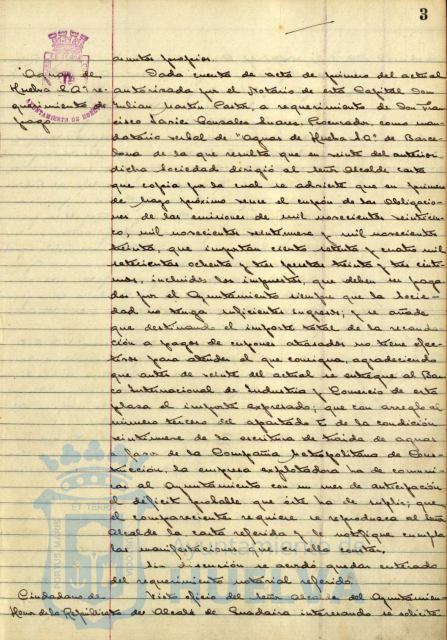 3
asuntos propios.
"Aguas de
Huelva S.A." re-
querimiento de
pago
Dada cuenta de acta de primero del actual
autorizada por el Notario de esta Capital Don
Julian Martin Pastor, a requerimiento de Don Fran-
cisco Javier Gonzalez Suarez, Procurador, como man-
datario verbal de "Aguas de Huelva S.A." de Barce-
lona de la que resulta que en veinte del anterior
dicha Sociedad dirigió al Señor Alcalde carta
que copia por la cual se advierte que en primero
de Mayo próximo vence el cupón de las Obligacio-
nes de las emisiones de mil novecientos veinticin-
co, mil novecientos veintinueve y mil novecientos
treinta, que importan ciento setenta y cuatro mil
setecientas ochenta y tres pesetas treinta y tres cénti-
mos, incluidos los impuestos, que deben ser paga-
dos por el Ayuntamiento siempre que la Socie-
dad no tenga suficientes ingresos; y se añade
que destinando el importe total de la recauda-
ción a pagos de cupones atrasados no tiene efec-
tivos para atender al que consigna, agradeciendo
que antes de veinte del actual se entregue al Ban-
co Internacional de Industria y Comercio de esta
plaza el importe expresado; que con arreglo al
número tercero del apartado de la condición
veintinueve de la escritura de traida de aguas
a favor de la Compañia Metropolitana de Cons-
trucción, la empresa explotadora ha de comuni-
car al Ayuntamiento con un mes de anticipación
el déficit probable que éste ha de suplir; que
el compareciente requiere se reproduzca al Señor
Alcalde la carta referida y le notifique cumpla
las manifestaciones que en ella constan.
Sin discusión se acordó quedar enterado
del requerimiento notarial referido.
Ciudadano de
Honor de la República
Visto oficio del Señor Alcalde del Ayuntamien-
to de Alcalá de Guadaira interesando se solicite